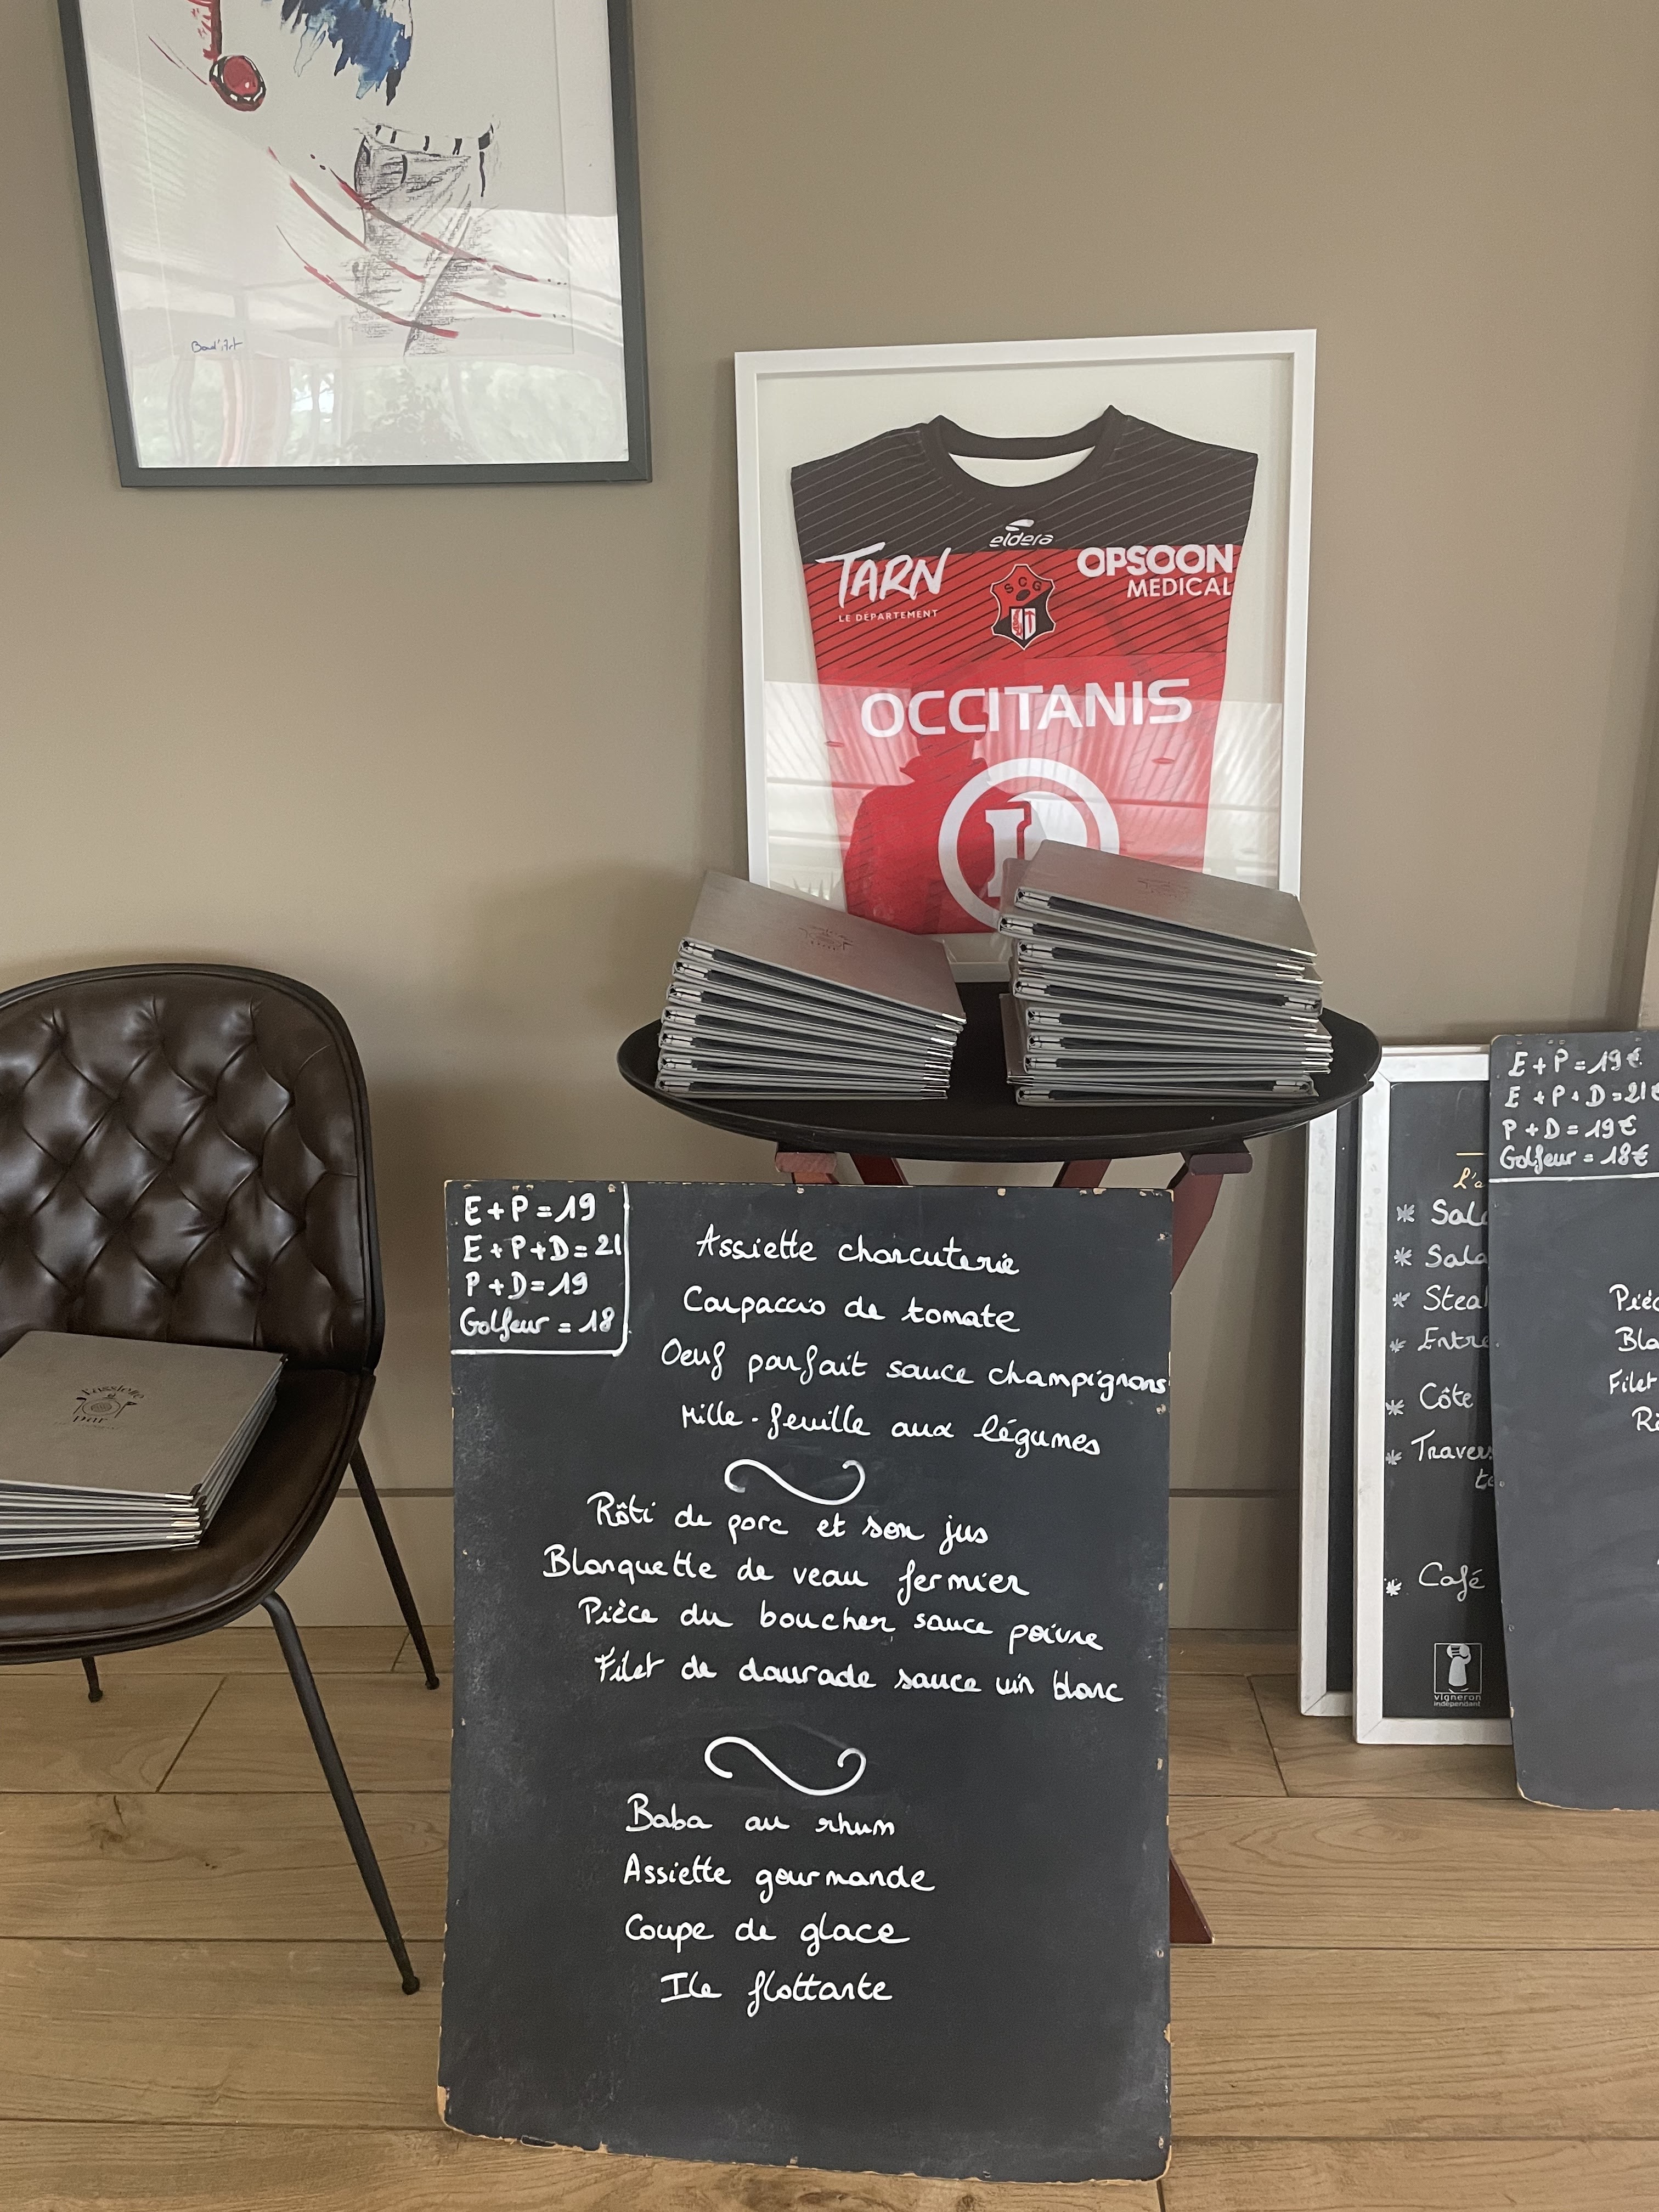 Baud'Art
eldera
TARN
LE DÉPARTEMENT
OPSOON
MEDICAL
SCG
OCCITANIS
E + P = 19
E + P + D = 21
P + D = 19
Golfeur = 18
Assiette charcuterie
Carpaccio de tomate
Oeuf parfait sauce champignons
Mille-feuille aux légumes
Rôti de porc et son jus
Blanquette de veau fermier
Pièce du boucher sauce poivre
Filet de daurade sauce vin blanc
Baba au rhum
Assiette gourmande
Coupe de glace
Ile flottante
l'assiette
par
Sal
Sala
Steak
Entre
Côte
Travers
Café
vigneron
indépendant
E + P = 19€
E + P + D = 21€
P + D = 19€
Golfeur = 18€
Pièc
Bla
Filet
Rô